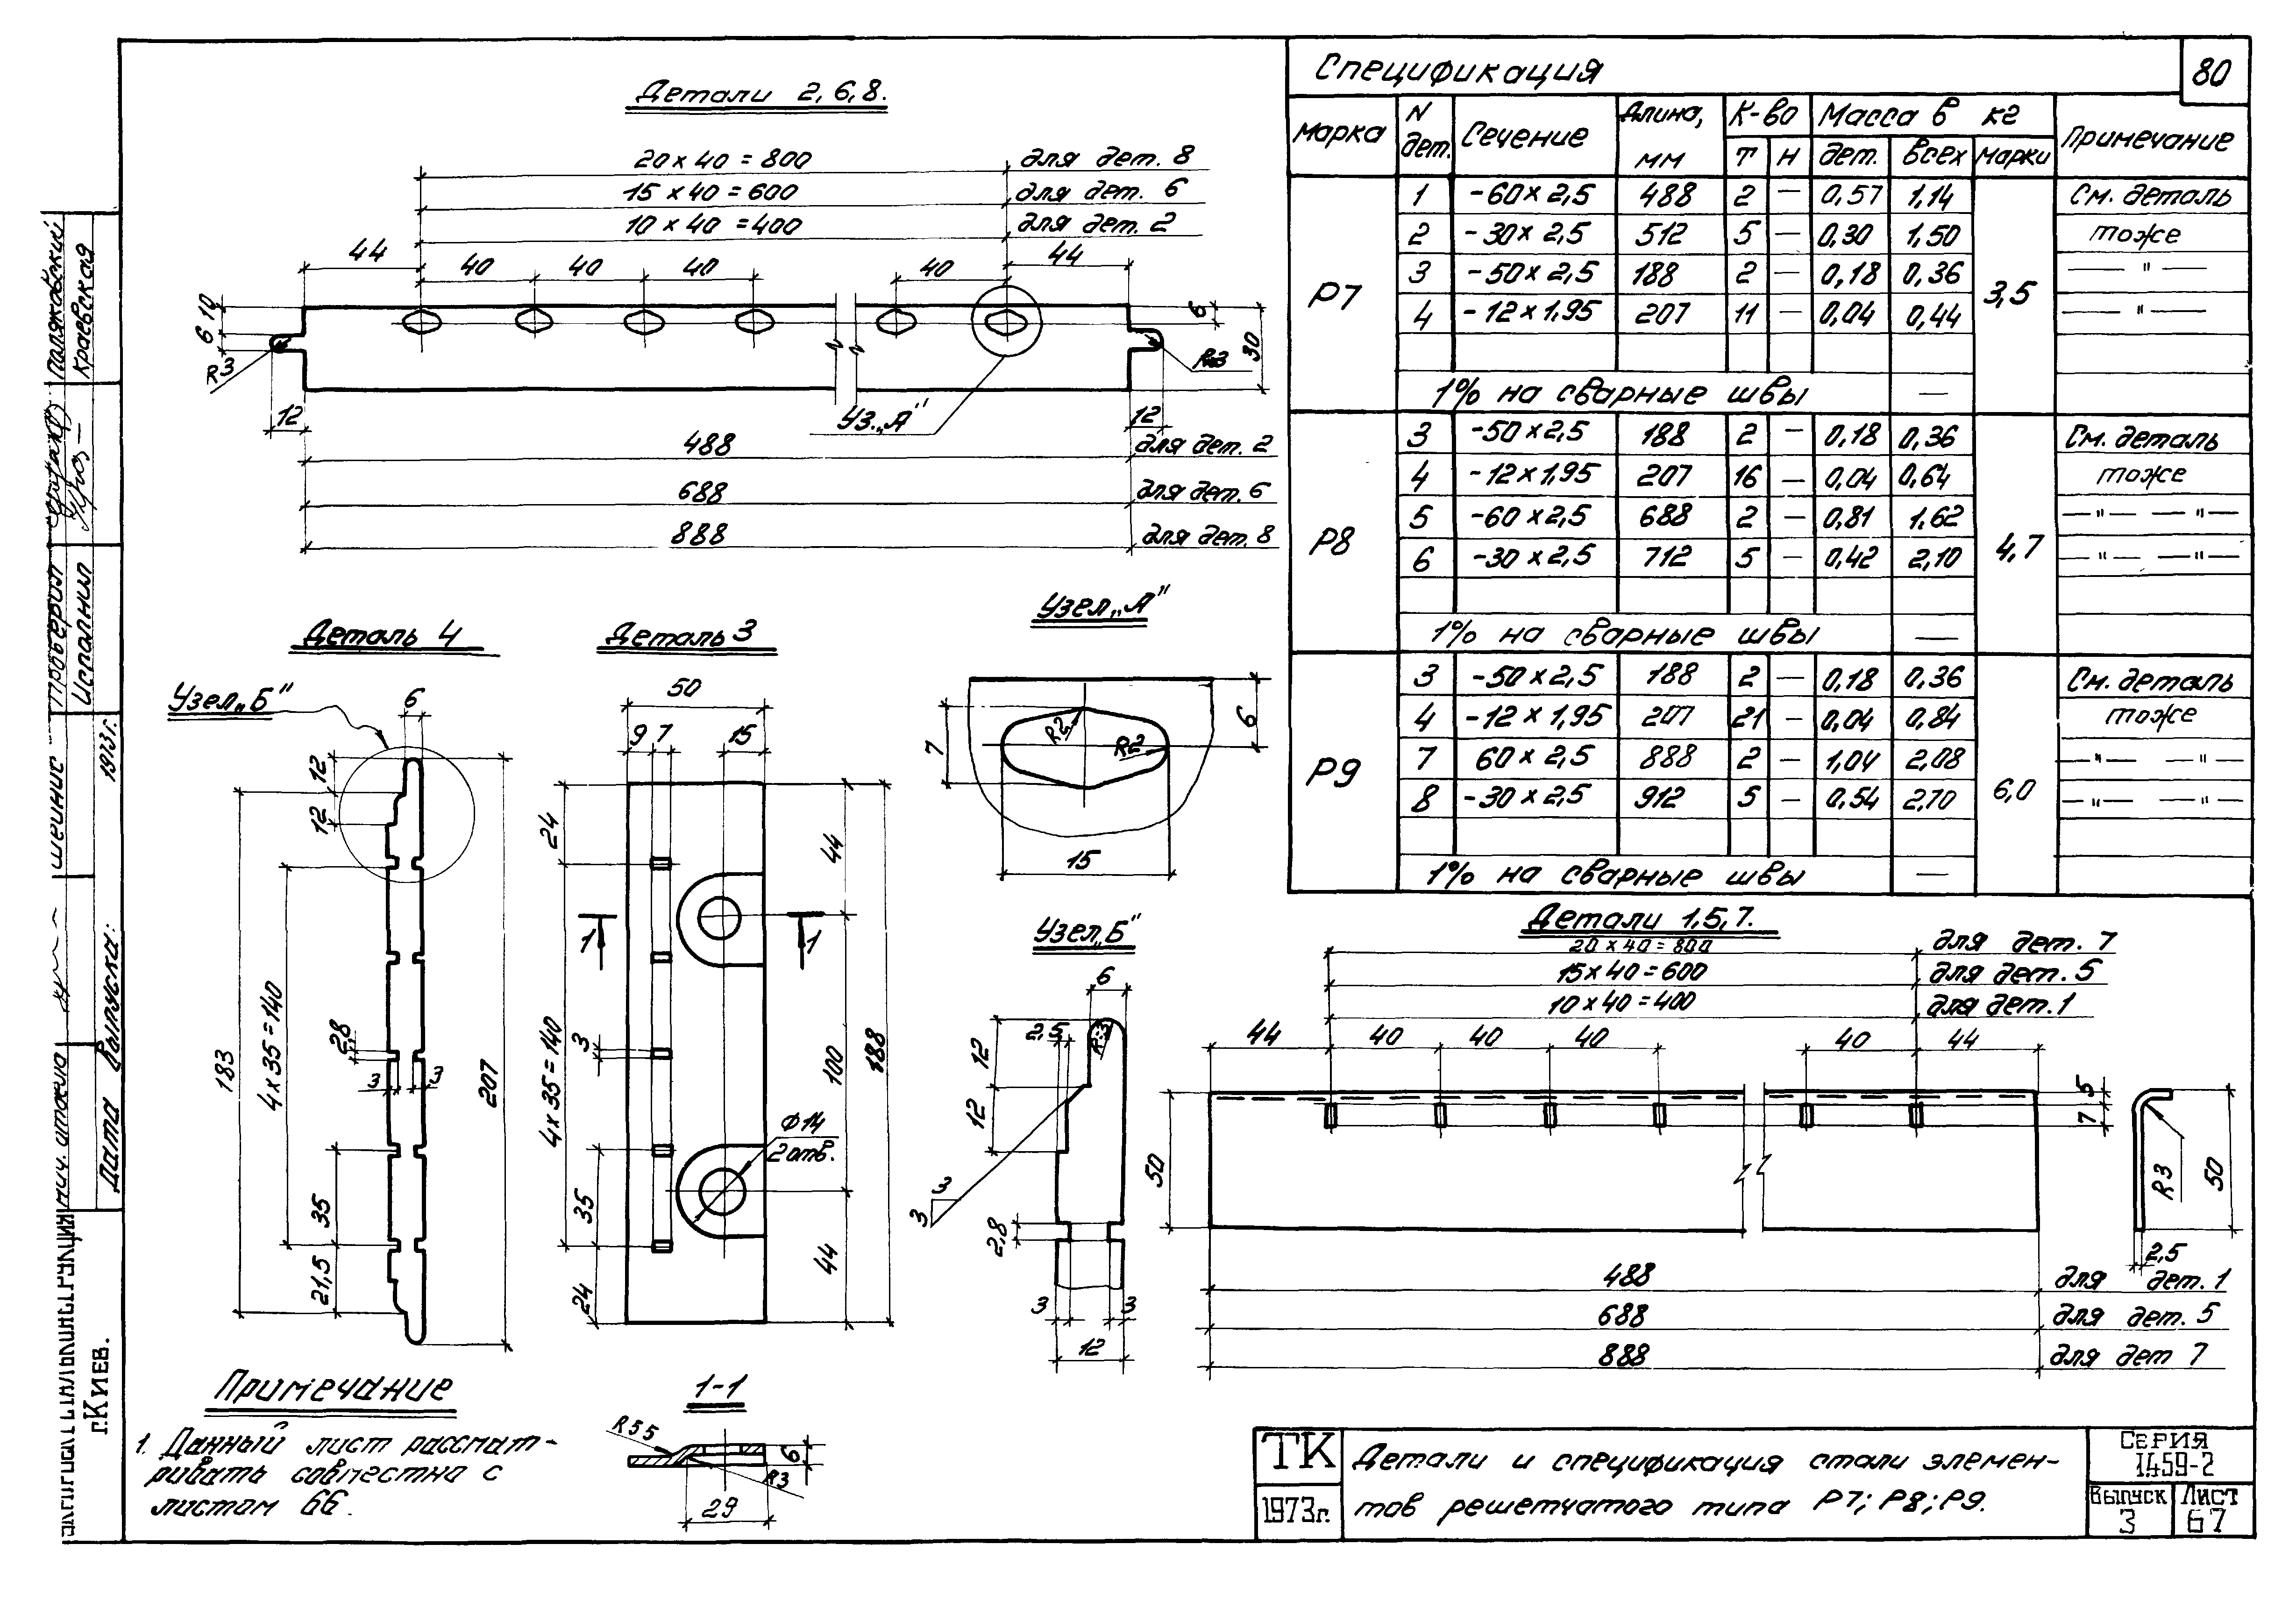 Детали 2, 6, 8.
20 х 40 = 800 для дет. 8
15 х 40 = 600 для дет. 6
10 х 40 = 400 для дет. 2
44 40 40 40 40 44
10
6
6
30
R3
R3
12
Уз. „А"
12
488 для дет. 2
688 для дет. 6
888 для дет. 8
Деталь 4
Узел „Б"
6
12
12
183
4 х 35 = 140
2,8
3 3
207
35
21,5
Деталь 3
50
9 7 15
24
44
1 1
4 х 35 = 140
3
100
188
Ф 14
2 отв.
35
24
44
Узел „А"
7
R2
R2
6
15
Узел „Б"
6
2,5
R3
12
12
3
3
2,8
3 3
12
1-1
R55
6
R3
29
Примечание
1. Данный лист рассмат-
ривать совместна с
листом 66.
Спецификация 80
Марка N дет. Сечение Длина, мм К-во Масса в кг Примечание
Т Н дет. Всех марки
Р7 3,5
1 -60 х 2,5 488 2 — 0,57 1,14 См. деталь
2 -30 х 2,5 512 5 — 0,30 1,50 тоже
3 -50 х 2,5 188 2 — 0,18 0,36 — " —
4 -12 х 1,95 207 11 — 0,04 0,44 — " —
1% на сварные швы —
Р8 4,7
3 -50 х 2,5 188 2 — 0,18 0,36 См. деталь
4 -12 х 1,95 207 16 — 0,04 0,64 тоже
5 -60 х 2,5 688 2 — 0,81 1,62 — " — — " —
6 -30 х 2,5 712 5 — 0,42 2,10 — " — — " —
1% на сварные швы —
Р9 6,0
3 -50 х 2,5 188 2 — 0,18 0,36 См. деталь
4 -12 х 1,95 207 21 — 0,04 0,84 тоже
7 60 х 2,5 888 2 — 1,04 2,08 — " — — " —
8 -30 х 2,5 912 5 — 0,54 2,70 — " — — " —
1% на сварные швы —
Детали 1, 5, 7.
20 х 40 = 800 для дет. 7
15 х 40 = 600 для дет. 5
10 х 40 = 400 для дет. 1
44 40 40 40 40 44
50
5
7
R3
50
2,5
488 для дет. 1
688 для дет. 5
888 для дет 7
ТК
1973г.
Детали и спецификация стали элемен-
тов решетчатого типа Р7; Р8; Р9.
Серия
1459-2
Выпуск
3
Лист
67
Краевская
Проверил
Исполнил
1973г.
Дата Выпуска:
г.Киев.